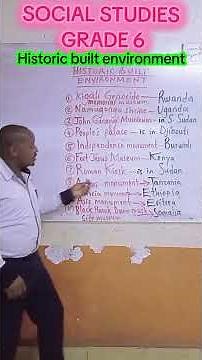 SOCIAL STUDIES
GRADE 6
Historic built environment
HISTORIC BUILT
ENVIRONMENT
① Kigali Genocide Rwanda
memorial museum
② Namugongo Shrine Uganda
③ John Garang Mausoleum in S. Sudan
④ People's palace is in Djibouti
⑤ Independence monument Burundi
⑥ Fort Jesus Museum Kenya
⑦ Roman Kiosk is in Sudan
monument Tanzania
monument Ethiopia
monument Eritrea
Black Hawk Down Somalia
site